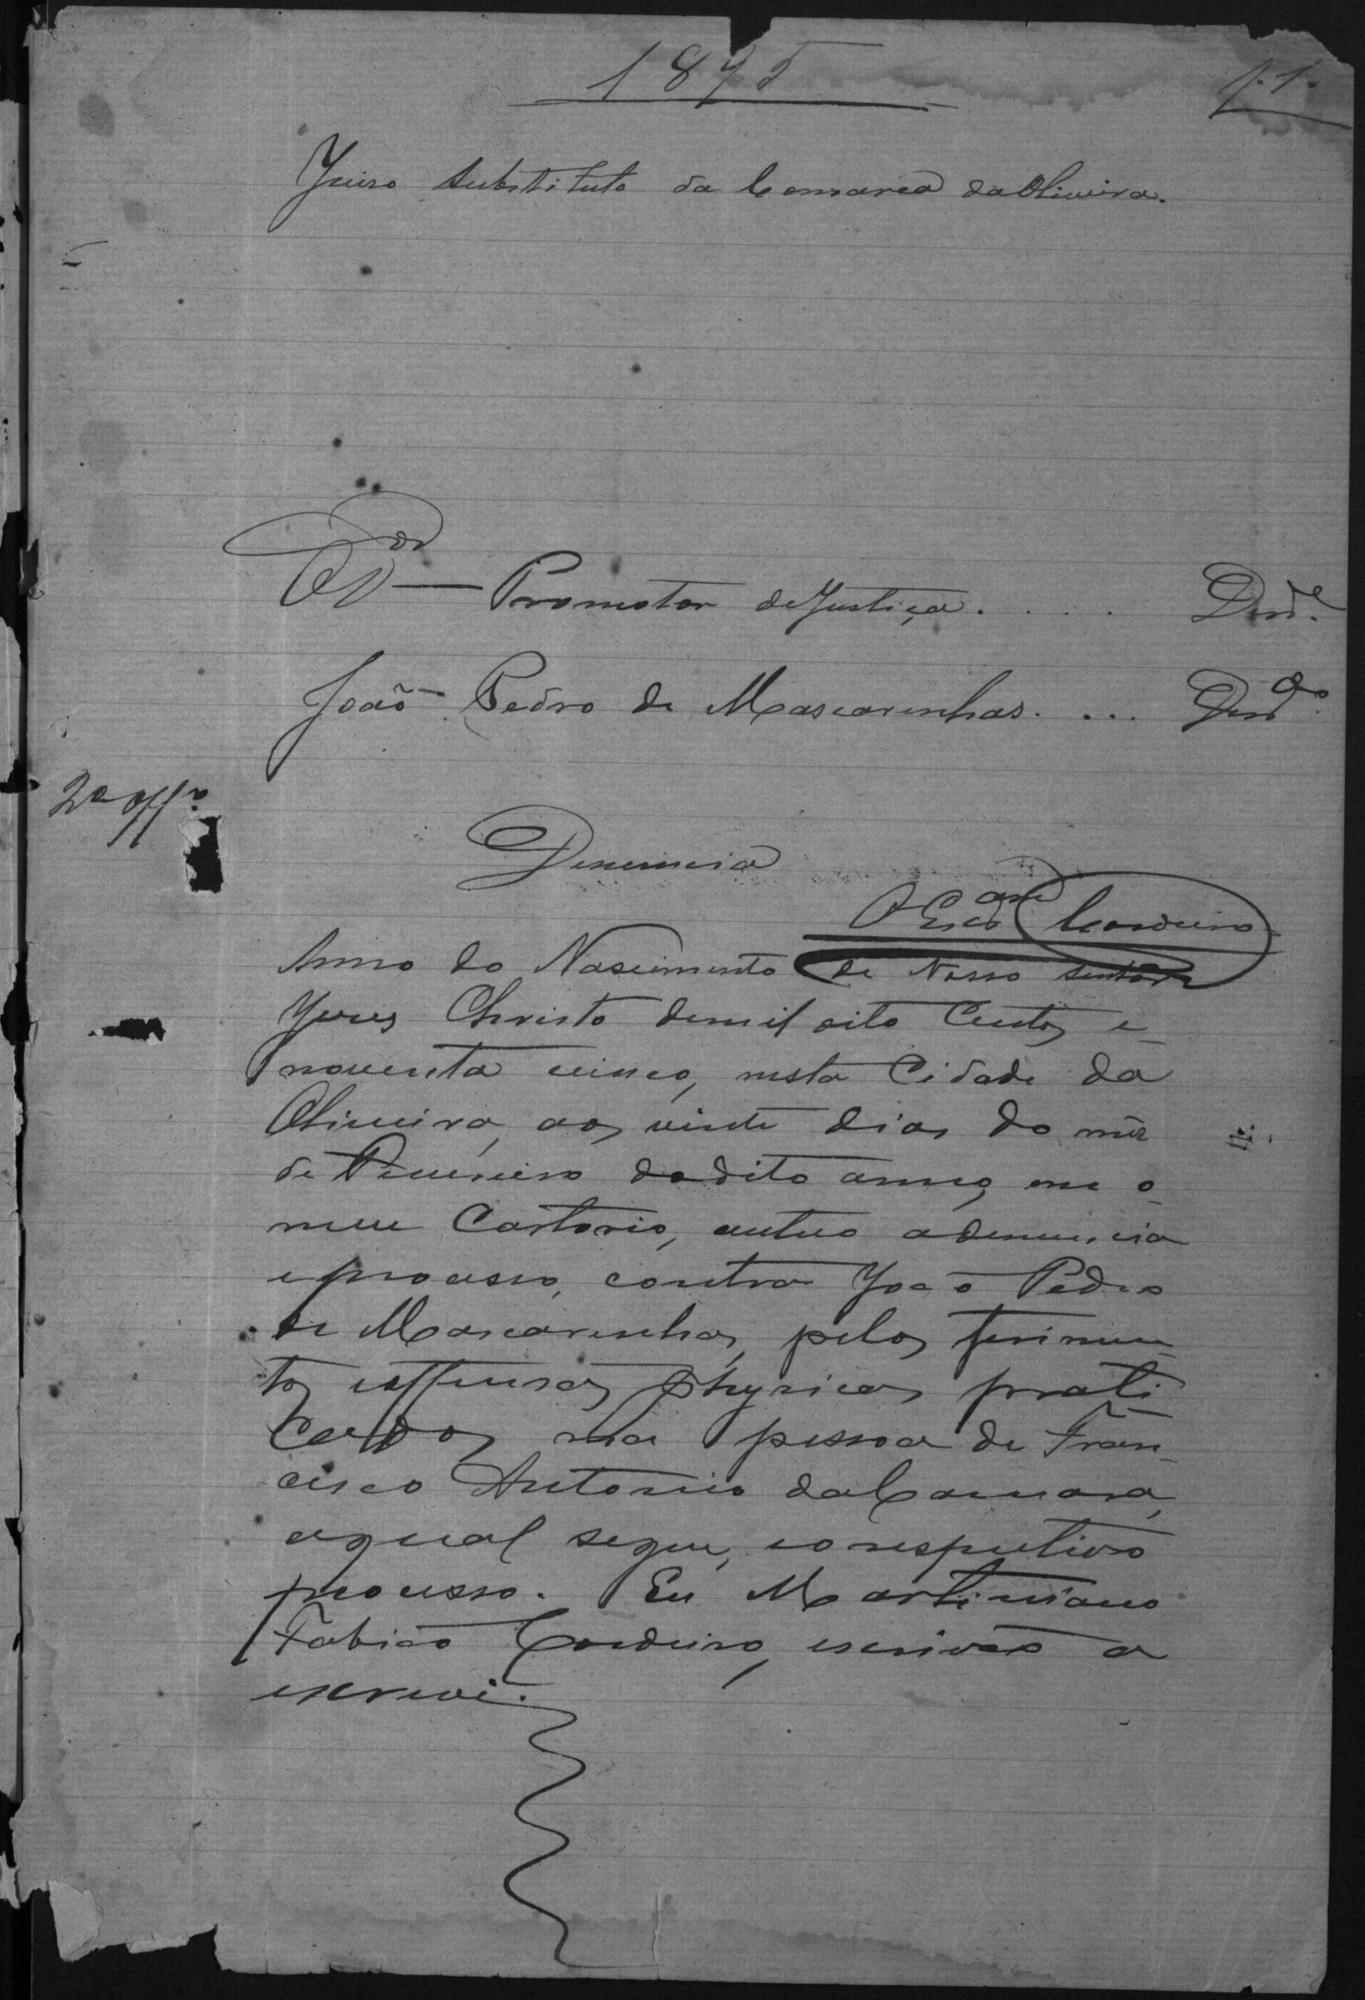 1895
f. 1.
Juizo Substituto da Comarca da Oliveira.
O Dor Promotor de Justiça. . . . Dnte.
João Pedro de Mascarenhas. ... Dndo.
2º offº
Denuncia
O Escam Cordeiro
Anno do Nascimento de Nosso Senhor
Jesus Christo de mil oito Centos e
noventa cinco, nesta Cidade da
Oliveira, aos vinte dias do mez
de Fevereiro do dito anno, em o
meu Cartorio, autuo a denuncia
e processo, contra João Pedro
de Mascarenhas, pelos ferimen-
tos e offensas physicas prati-
cados na pessoa de Fran-
cisco Antonio da Camara,
a qual segue, e o respectivo
processo. Eu Martiniano
Fabião Cordeiro, escrivão a
escrevi.